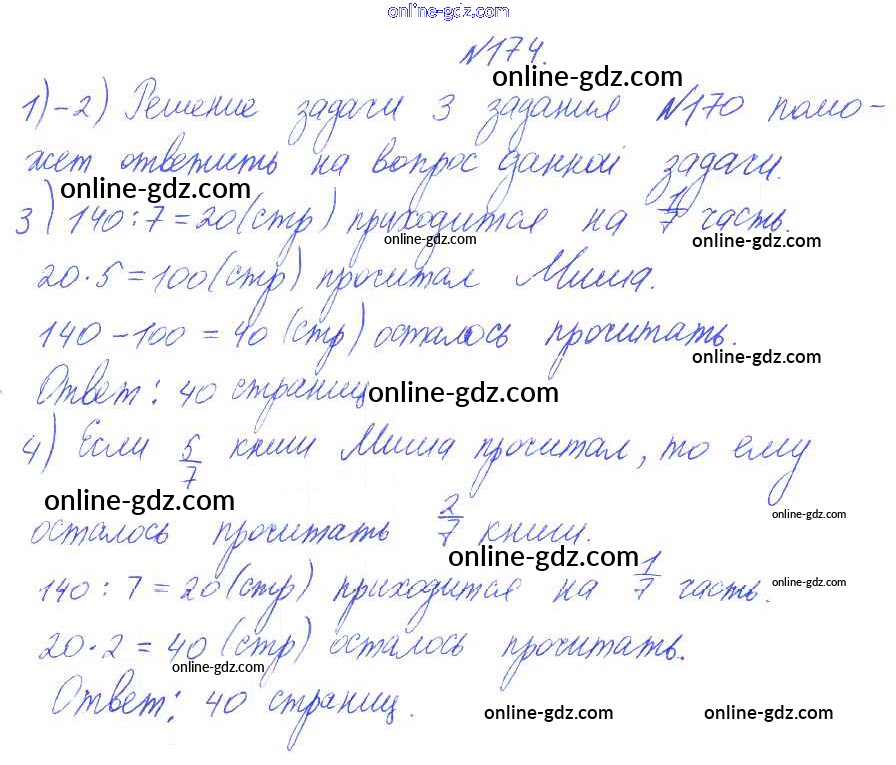 online-gdz.com
№174.
online-gdz.com
1)-2) Решение задачи 3 задания №170 помо-
жет ответить на вопрос данной задачи.
online-gdz.com
3) 140:7=20(стр) приходится на 1/7 часть.
online-gdz.com online-gdz.com
20·5=100(стр) прочитал Миша.
140-100=40(стр) осталось прочитать.
online-gdz.com
Ответ: 40 страниц
online-gdz.com
4) Если 5/7 книги Миша прочитал, то ему
online-gdz.com online-gdz.com
осталось прочитать 2/7 книги.
online-gdz.com
140:7=20(стр) приходится на 1/7 часть.
online-gdz.com
20·2=40(стр) осталось прочитать.
online-gdz.com
Ответ: 40 страниц.
online-gdz.com online-gdz.com